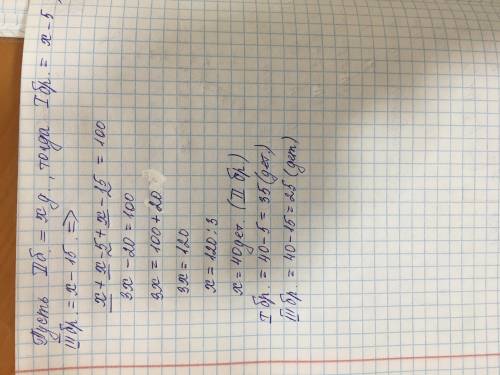 Пусть II б = х д., тогда I бр. = х - 5,
III бр. = х - 15. =>
х + х - 5 + х - 15 = 100
3х - 20 = 100
3х = 100 + 20
3х = 120
х = 120 : 3
х = 40 дет. (II бр)
I бр. = 40 - 5 = 35 (дет.)
III бр. = 40 - 15 = 25 (дет)